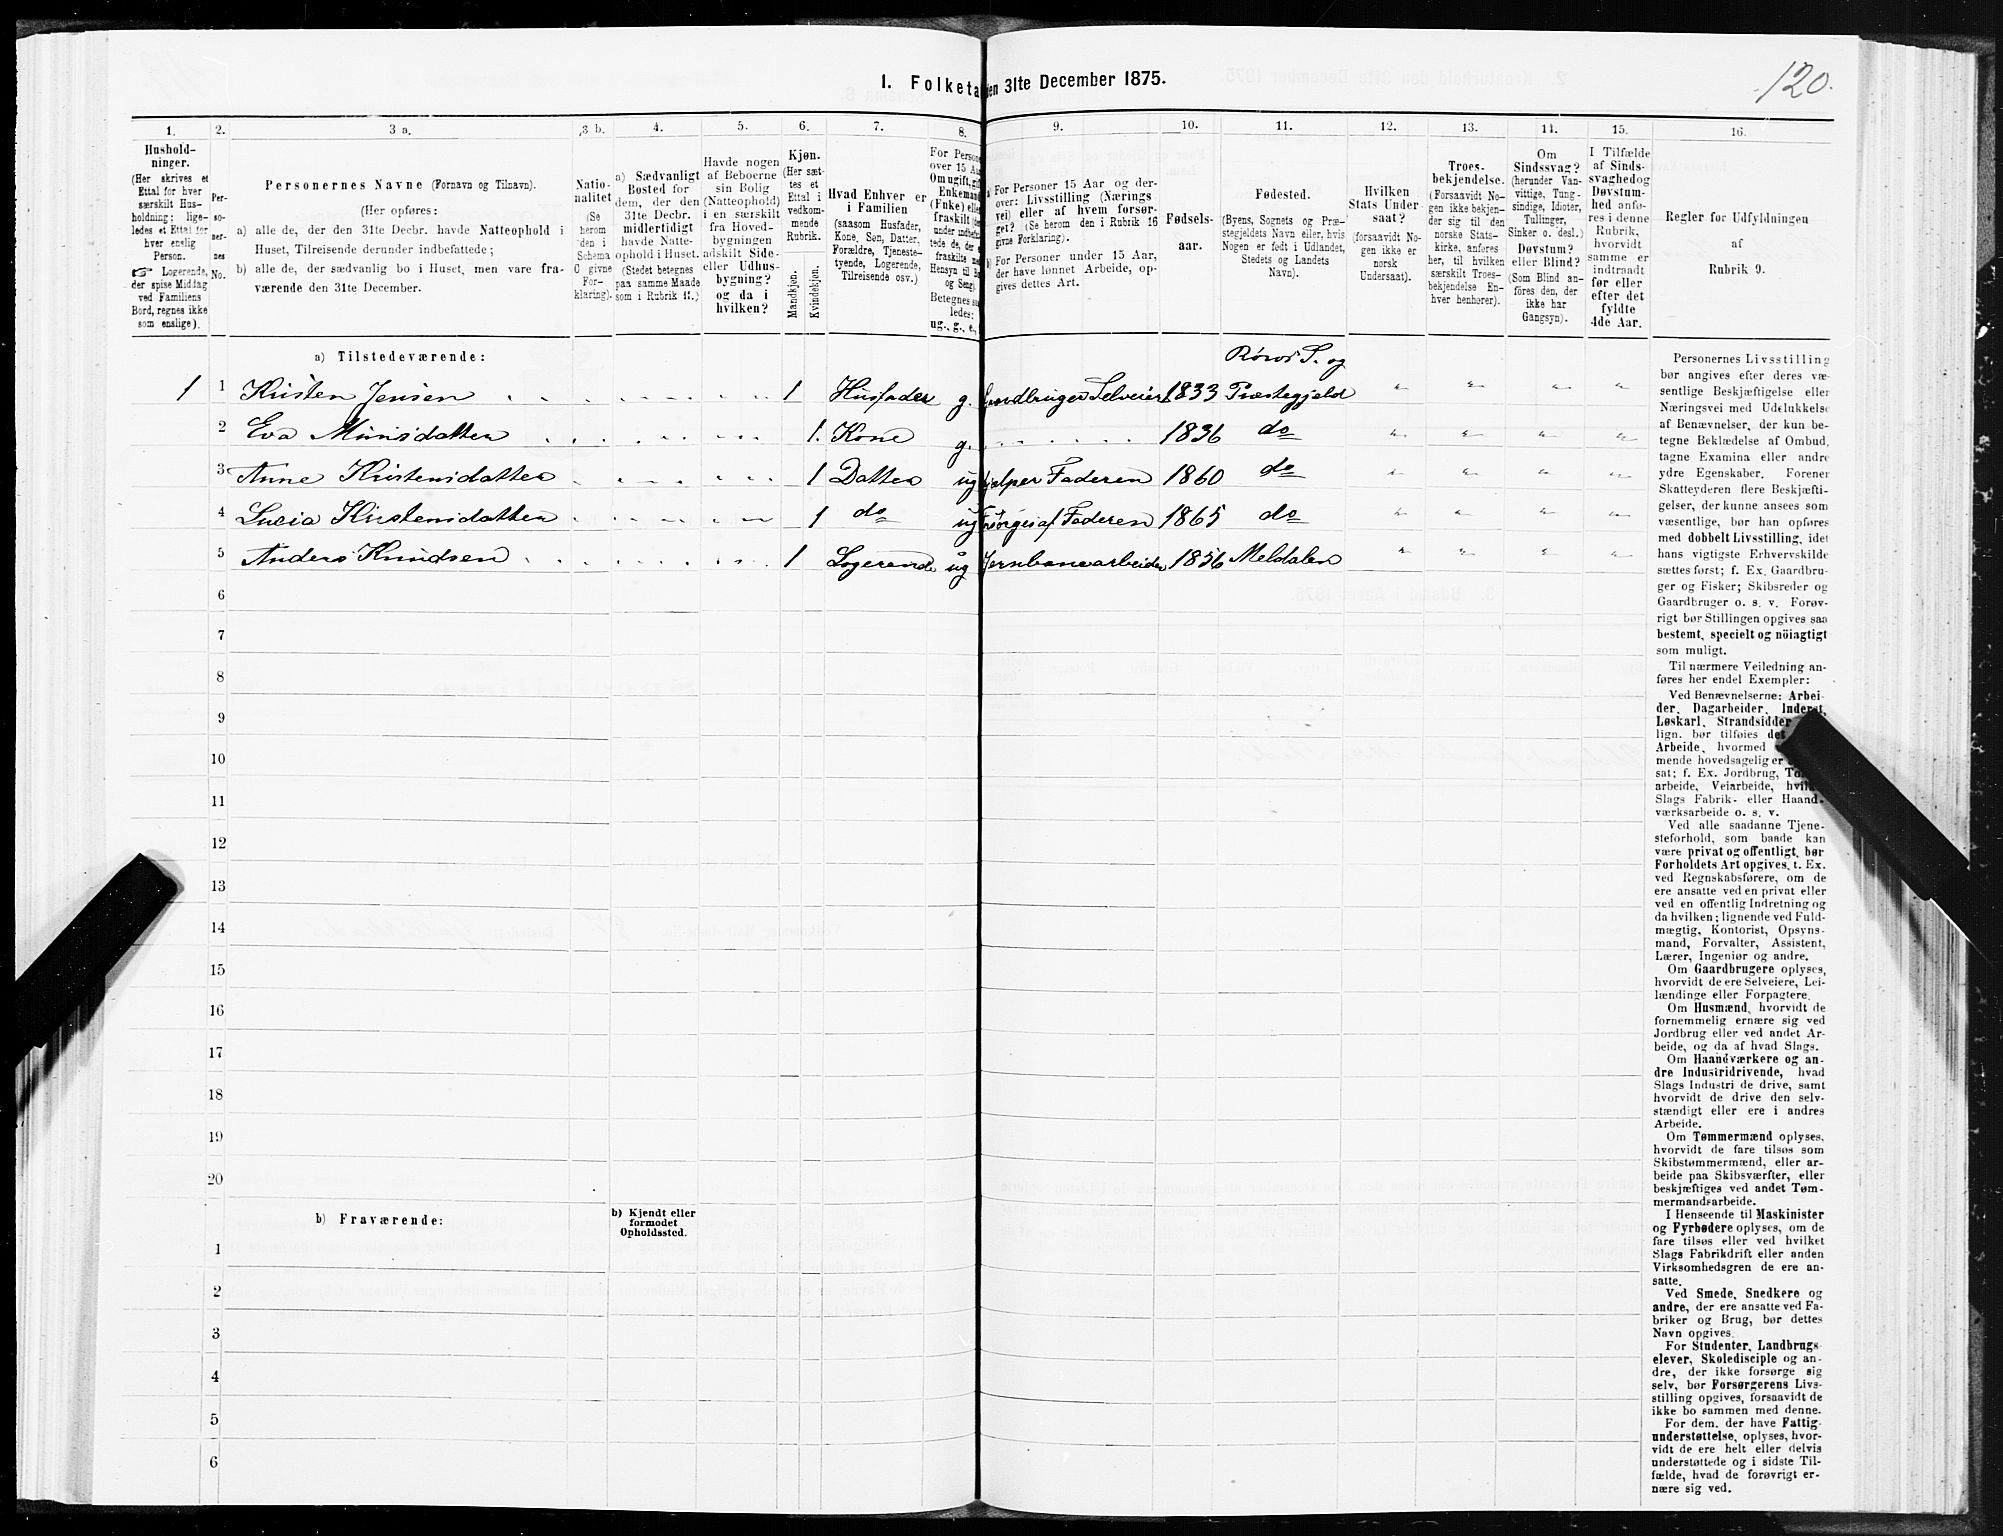 120.
I. Folketa den 31te December 1875.
1. 2. 3 a. 3 b. 4. 5. 6. 7. 8. 9. 10. 11. 12. 13. 14. 15. 16.
Hushold-
ninger.
(Her skrives et
Ettal for hver
særskilt Hus-
holdning; lige-
ledes et Ettal for
hver enslig
Person.
☞ Logerende,
der spise Middag
ved Familiens
Bord, regnes ikke
som enslige).
Per-
so-
ner-
nes
No.
Personernes Navne (Fornavn og Tilnavn).
(Her opføres:
a) alle de, der den 31te Decbr. havde Natteophold i
Huset, Tilreisende derunder indbefattede;
b) alle de, der sædvanlig bo i Huset, men vare fra-
værende den 31te December.
Natio-
nalitet
(Se
herom
den i
Schema
C givne
For-
klaring).
a) Sædvanligt
Bosted for
dem, der den
31te Decbr.
midlertidigt
havde Natte-
ophold i Huset.
(Stedet betegnes
paa samme Maade
som i Rubrik 11.)
Havde nogen
af Beboerne
sin Bolig
(Natteophold)
i en særskilt
fra Hoved-
bygningen
adskilt Side-
eller Udhus-
bygning?
og da i
hvilken?
Kjøn.
(Her sæt-
tes et
Ettal i
vedkom-
mende
Rubrik.
Mandkjøn.
Kvindekjøn.
Hvad Enhver er
i Familien
(saasom Husfader,
Kone, Søn, Datter,
Forældre, Tjeneste-
tyende, Logerende,
Tilreisende osv.)
For Persone
over 15 Aa
Om ugift, gif
Enkemand
(Enke) elle
fraskilt (
under indbefat-
tede de, der e
fraskilte me
Hensyn til Bo
og Seng).
Betegnes saa
ledes:
ug., g., e.,
a) For Personer 15 Aar og der-
over: Livsstilling (Nærings
vei) eller af hvem forsør-
get? (Se herom den i Rubrik 16
givne Forklaring).
b) For Personer under 15 Aar,
der have lønnet Arbeide, op-
gives dettes Art.
Fødsels-
aar.
Fødested.
(Byens, Sognets og Præ-
stegjeldets Navn eller, hvis
Nogen er født i Udlandet,
Stedets og Landets
Navn).
Hvilken
Stats Under-
saat?
(forsaavidt No-
gen ikke er
norsk
Undersaat).
Troes-
bekjendelse.
(Forsaavidt No-
gen ikke bekjen-
der sig til den
norske Stats-
kirke, anføres
her, til hvilken
særskilt Troes-
bekjendelse En-
hver henhører).
Om
Sindssvag?
(herunder Van-
vittige, Tung-
sindige, Idioter,
Tullinger,
Sinker o. desl.)
Døvstum?
eller Blind?
(Som Blind an-
føres den, der
ikke har
Gangsyn).
I Tilfælde
af Sinds-
svaghed og
Døvstum-
hed anfø-
res i denne
Rubrik,
hvorvidt
samme er
indtraadt
før eller
efter det
fyldte
4de Aar.
Regler for Udfyldningen
af
Rubrik 9.
a) Tilstedeværende:
Røros S. og
1 1 Kristen Jensen 1 Husfader g. Gaardbruger Selveier 1833 Præstegjeld
2 Eva Monsdatter 1. Kone g. 1836 do
3 Anne Kristensdatter 1 Datter ug hjælper Faderen 1860 do
4 Lucia Kristensdatter 1 do ug Forsørges af Faderen 1865 do
5 Anders Knudsen 1 Logerende ug Jernbanearbeider 1856 Meldalen
6
7
8
9
10
11
12
13
14
15
16
17
18
19
20
b) Fraværende:
b) Kjendt eller
formodet
Opholdssted.
1
2
3
4
5
6
Personernes Livsstilling
bør angives efter deres væ-
sentlige Beskjæftigelse eller
Næringsvei med Udelukkelse
af Benævnelser, der kun be-
tegne Beklædelse af Ombud,
tagne Examina eller andre
ydre Egenskaber. Forener
Skatteyderen flere Beskjæfti-
gelser, der kunne ansees som
væsentlige, bør han opføres
med dobbelt Livsstilling, idet
hans vigtigste Erhvervskilde
sættes først; f. Ex. Gaardbru-
ger og Fisker; Skibsreder og
Gaardbruger o. s. v. Forøv-
rigt bør Stillingen opgives saa
bestemt, specielt og nöiagtigt
som muligt.
Til nærmere Veiledning an-
føres her endel Exempler:
Ved Benævnelserne: Arbei-
der, Dagarbeider, Inderst,
Løskarl, Strandsidder
lign. bør tilføies det
Arbeide, hvormed
mende hovedsagelig er
sat; f. Ex. Jordbrug,
arbeide, Veiarbeide,
Slags Fabrik- eller Haand-
værksarbeide o. s. v.
Ved alle saadanne Tjene-
steforhold, som baade kan
være privat og offentligt, bør
Forholdets Art opgives, t. Ex.
ved Regnskabsførere, om de
ere ansatte ved en privat eller
ved en offentlig Indretning og
da hvilken; lignende ved Fuld-
mægtig, Kontorist, Opsyns-
mand, Forvalter, Assistent,
Lærer, Ingeniør og andre.
Om Gaardbrugere oplyses,
hvorvidt de ere Selveiere, Lei-
lændinge eller Forpagtere.
Om Husmænd, hvorvidt de
fornemmelig ernære sig ved
Jordbrug eller ved andet Ar-
beide, og da af hvad Slags.
Om Haandværkere og an-
dre Industridrivende, hvad
Slags Industri de drive, samt
hvorvidt de drive den selv-
stændigt eller ere i andres
Arbeide.
Om Tømmermænd oplyses,
hvorvidt de fare tilsøs som
Skibstømmermænd, eller ar-
beide paa Skibsværfter, eller
beskjæftiges ved andet Tøm-
mermandsarbeide.
I Henseende til Maskinister
og Fyrbødere oplyses, om de
fare tilsøs eller ved hvilket
Slags Fabrikdrift eller anden
Virksomhedsgren de ere an-
satte.
Ved Smede, Snedkere og
andre, der ere ansatte ved Fa-
briker og Brug, bør dettes
Navn opgives.
For Studenter, Landbrugs-
elever, Skoledisciple og an-
dre, der ikke forsørge sig
selv, bør Forsørgerens Livs-
stilling opgives, forsaavidt de
ikke bo sammen med denne.
For dem, der have Fattig-
understøttelse, oplyses, hvor-
vidt de ere helt eller delvis
understøttede og i sidste Til-
fælde, hvad de forøvrigt er-
nære sig ved.